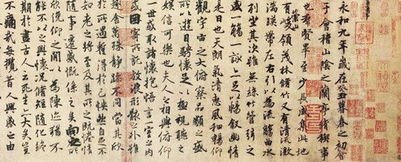 永和九年歲在癸丑暮春之初會
于會稽山陰之蘭亭脩稧事
也群賢畢至少長咸集此地
有崇山峻領茂林脩竹又有清流激
湍暎帶左右引以為流觴曲水
列坐其次雖無絲竹管弦之
盛一觴一詠亦足以暢敘幽情
是日也天朗氣清惠風和暢仰
觀宇宙之大俯察品類之盛
所以遊目騁懷足以極視聽之
娛信可樂也夫人之相與俯仰
一世或取諸懷抱悟言一室之內
或因寄所託放浪形骸之外雖
趣舍萬殊靜躁不同當其欣
於所遇蹔得於己快然自足不知
老之將至及其所之既惓情
隨事遷感慨係之矣向之所
欣俛仰之閒以為陳迹猶不
能不以之興懷況脩短隨化終
期於盡古人云死生亦大矣豈
不痛哉每攬昔人興感之由